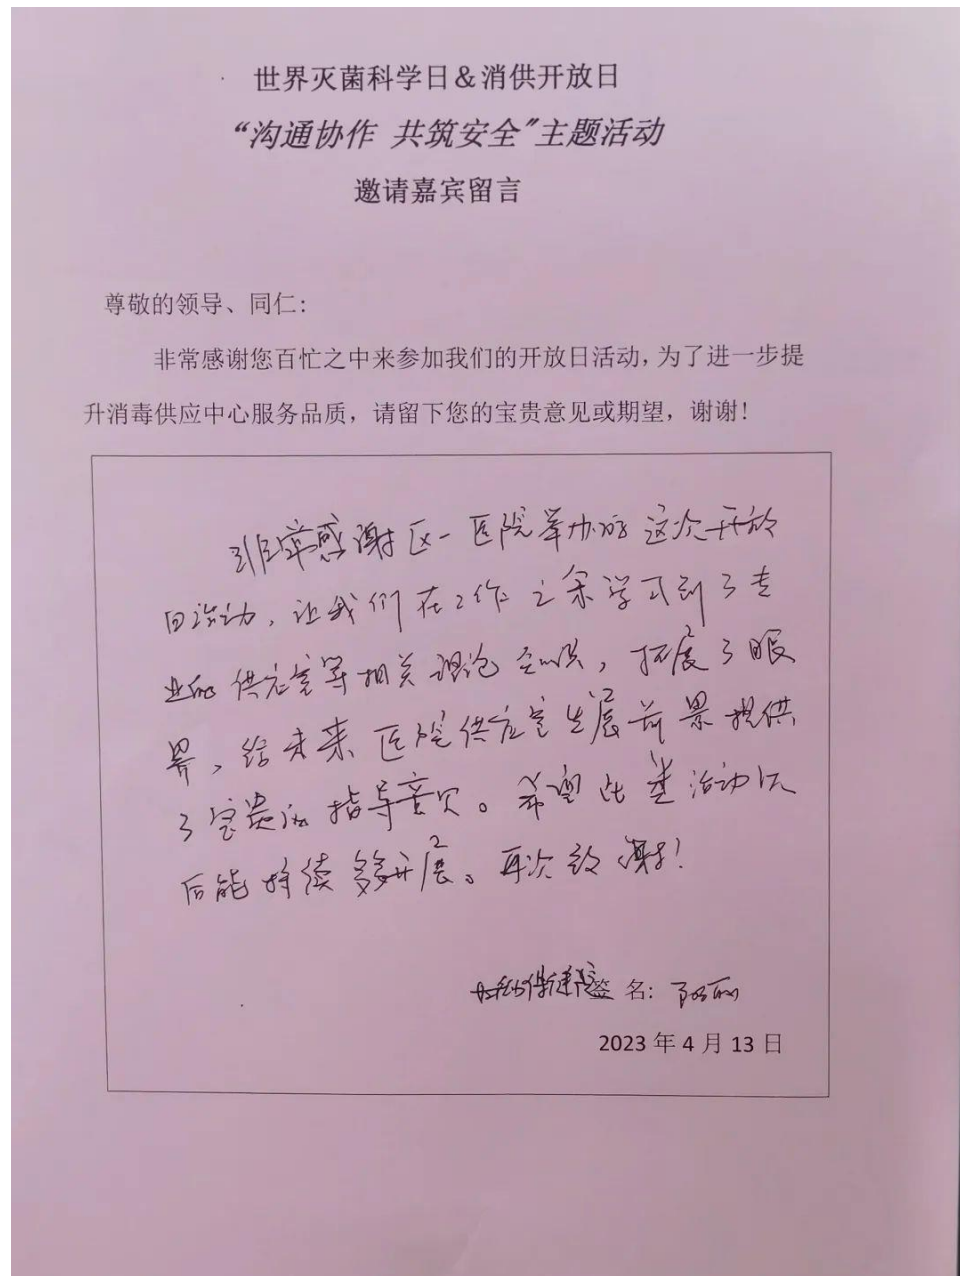 世界灭菌科学日＆消供开放日
“沟通协作 共筑安全”主题活动
邀请嘉宾留言
尊敬的领导、同仁:
非常感谢您百忙之中来参加我们的开放日活动,为了进一步提
升消毒供应中心服务品质，请留下您的宝贵意见或期望，谢谢!
非常感谢区一医院举办的这次开放
日活动，让我们在工作之余学习到了专
业的供应室等相关理论知识，拓展了眼
界，给未来医院供应室发展前景提供
了宝贵的指导意见。希望此类活动以
后能持续多多开展。再次致谢！
妇幼保健院签 名:
2023 年 4 月 13 日